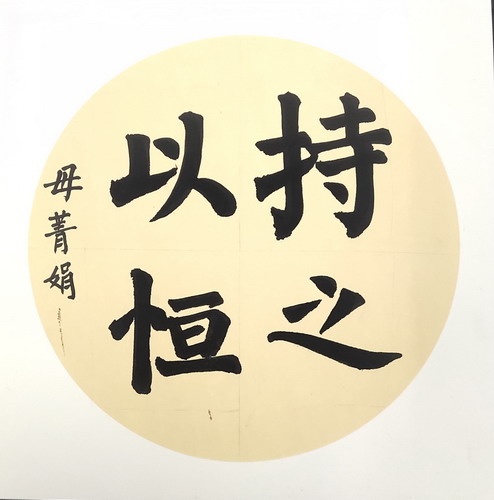 持之
以恒
毋菁娟